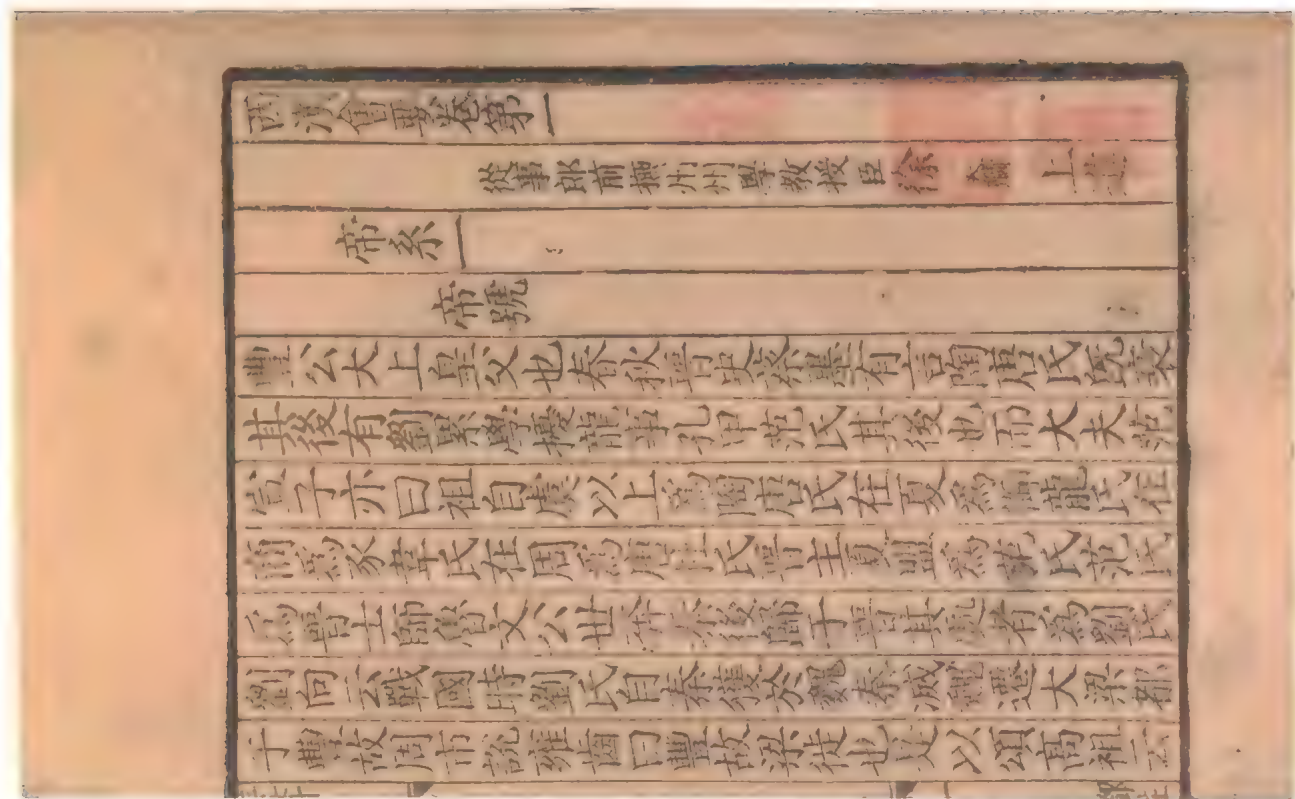 西漢會要卷第一
從事郎前撫州州學教授臣徐 天麟 上進
帝系一
帝號
豐公大上皇父也春秋晉史蔡墨有言陶唐氏既衰
其後有劉累學擾龍事孔甲范氏其後也而大夫范
宣子亦曰祖自虞以上為陶唐氏在夏為御龍氏在
商為豕韋氏在周為唐杜氏晉主夏盟為范氏范氏
為晉士師魯文公世奔秦後歸于晉其處者為劉氏
劉向云戰國時劉氏自秦獲於魏秦滅魏遷大梁都
于豐故周市說雍齒曰豐故梁徙也是以頌高祖云